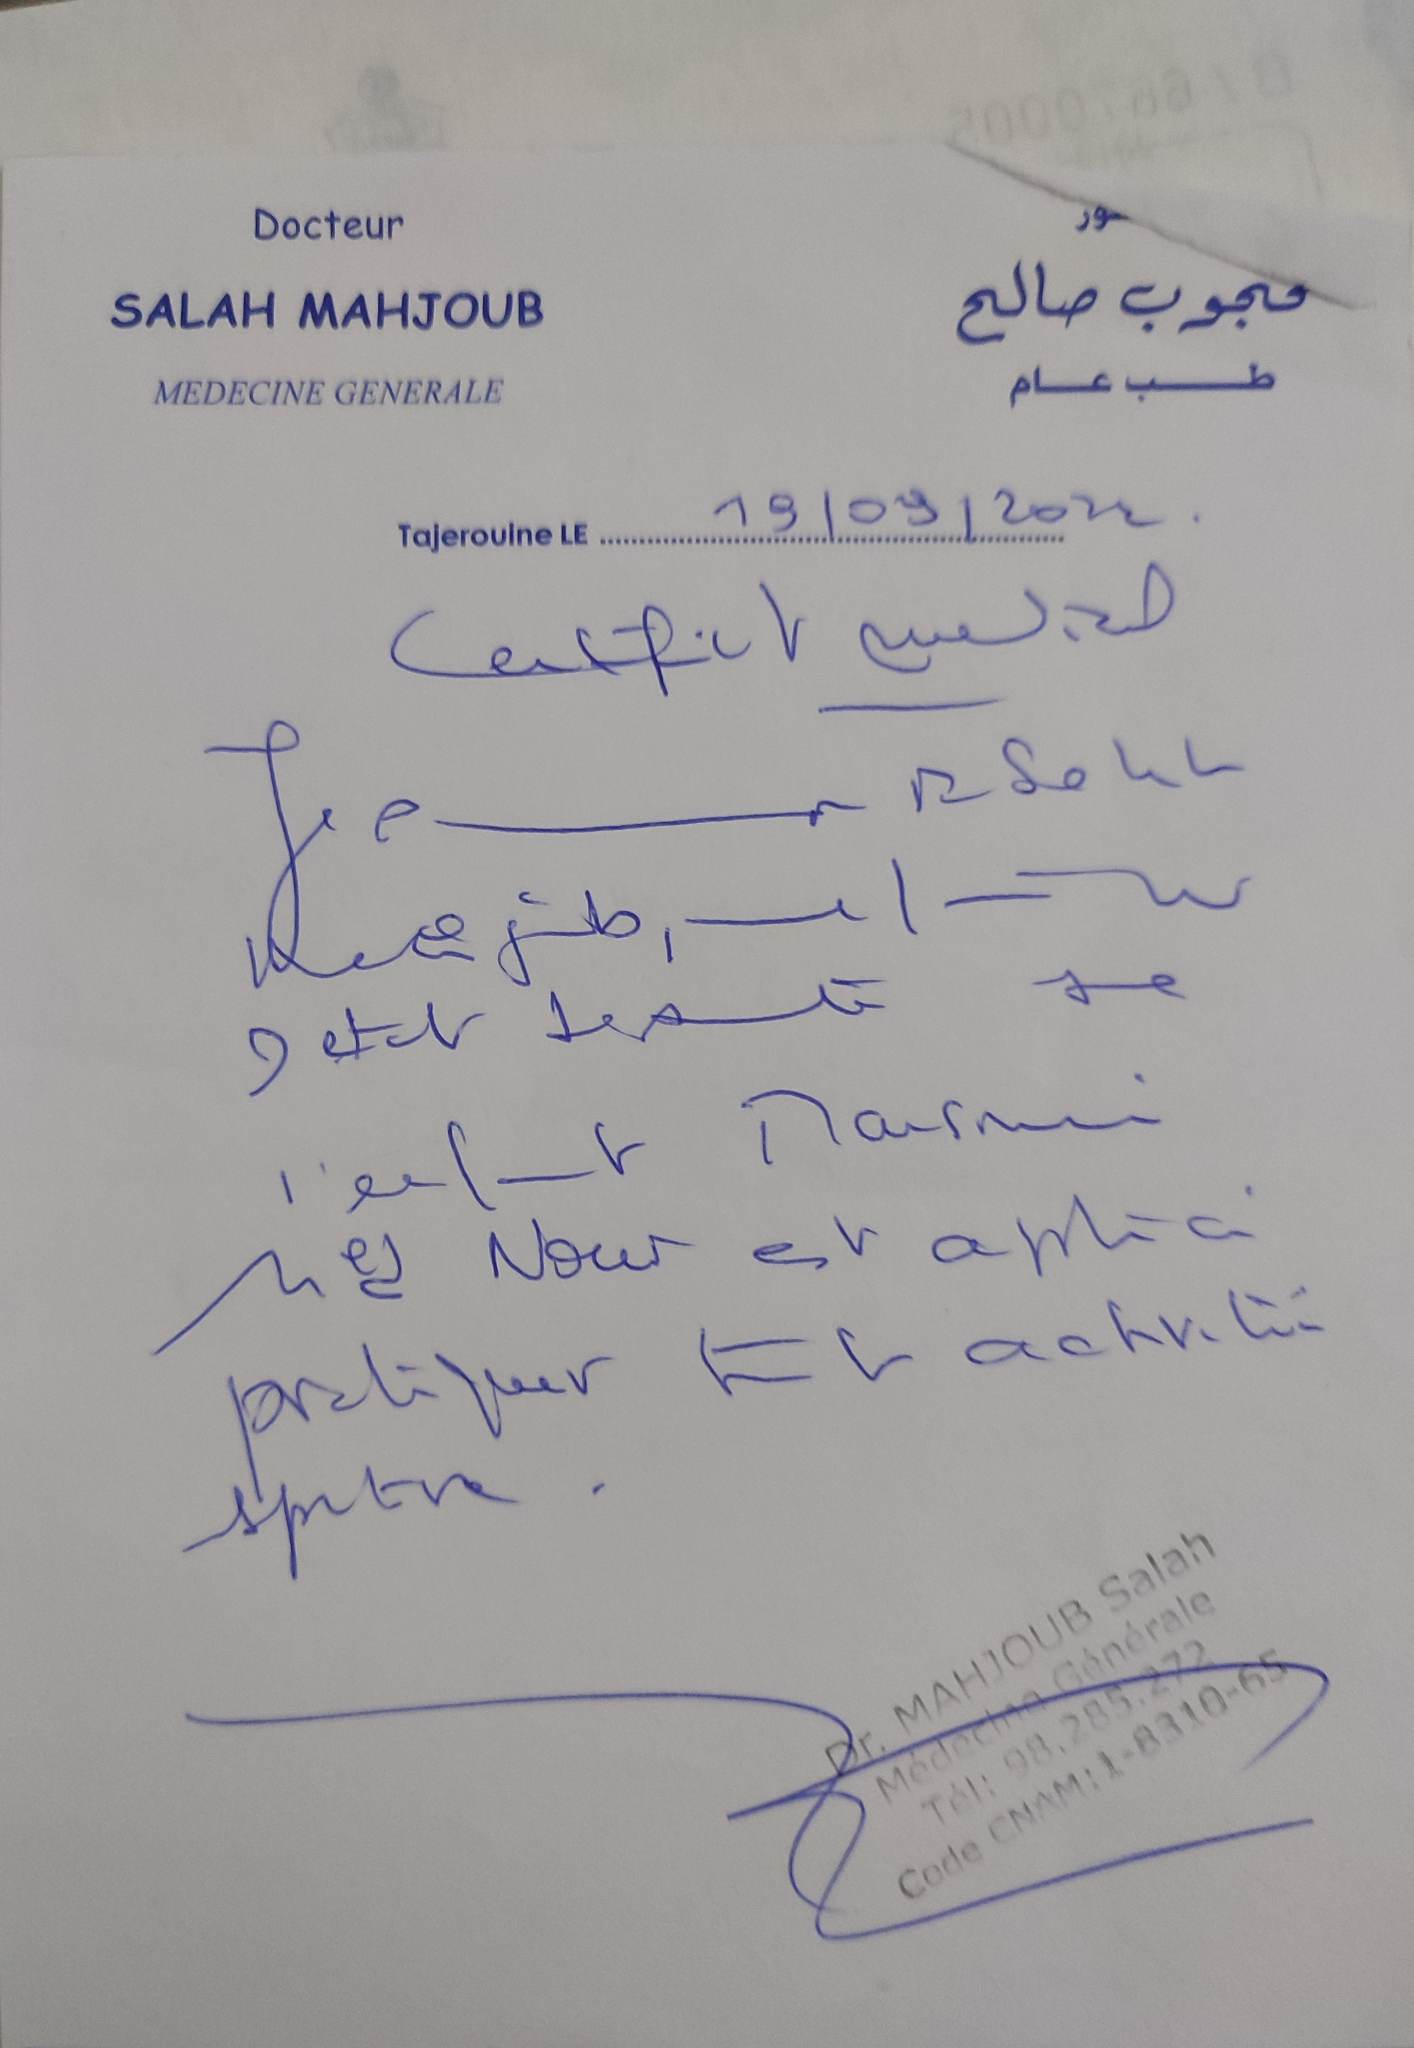 Docteur
SALAH MAHJOUB
MEDECINE GENERALE
ور
محجوب صالح
طب عام
Tajerouine LE 19/09/2022.
Certificat medical
Je Dr Salah
Mahjoub, que
l'etat de santé de
l'enfant
Nour est apte à
pratiquer toute activité
sportive.
Dr. MAHJOUB Salah
Médecine Générale
Tél: 98.285.272
Code CNAM: 1-8310-65